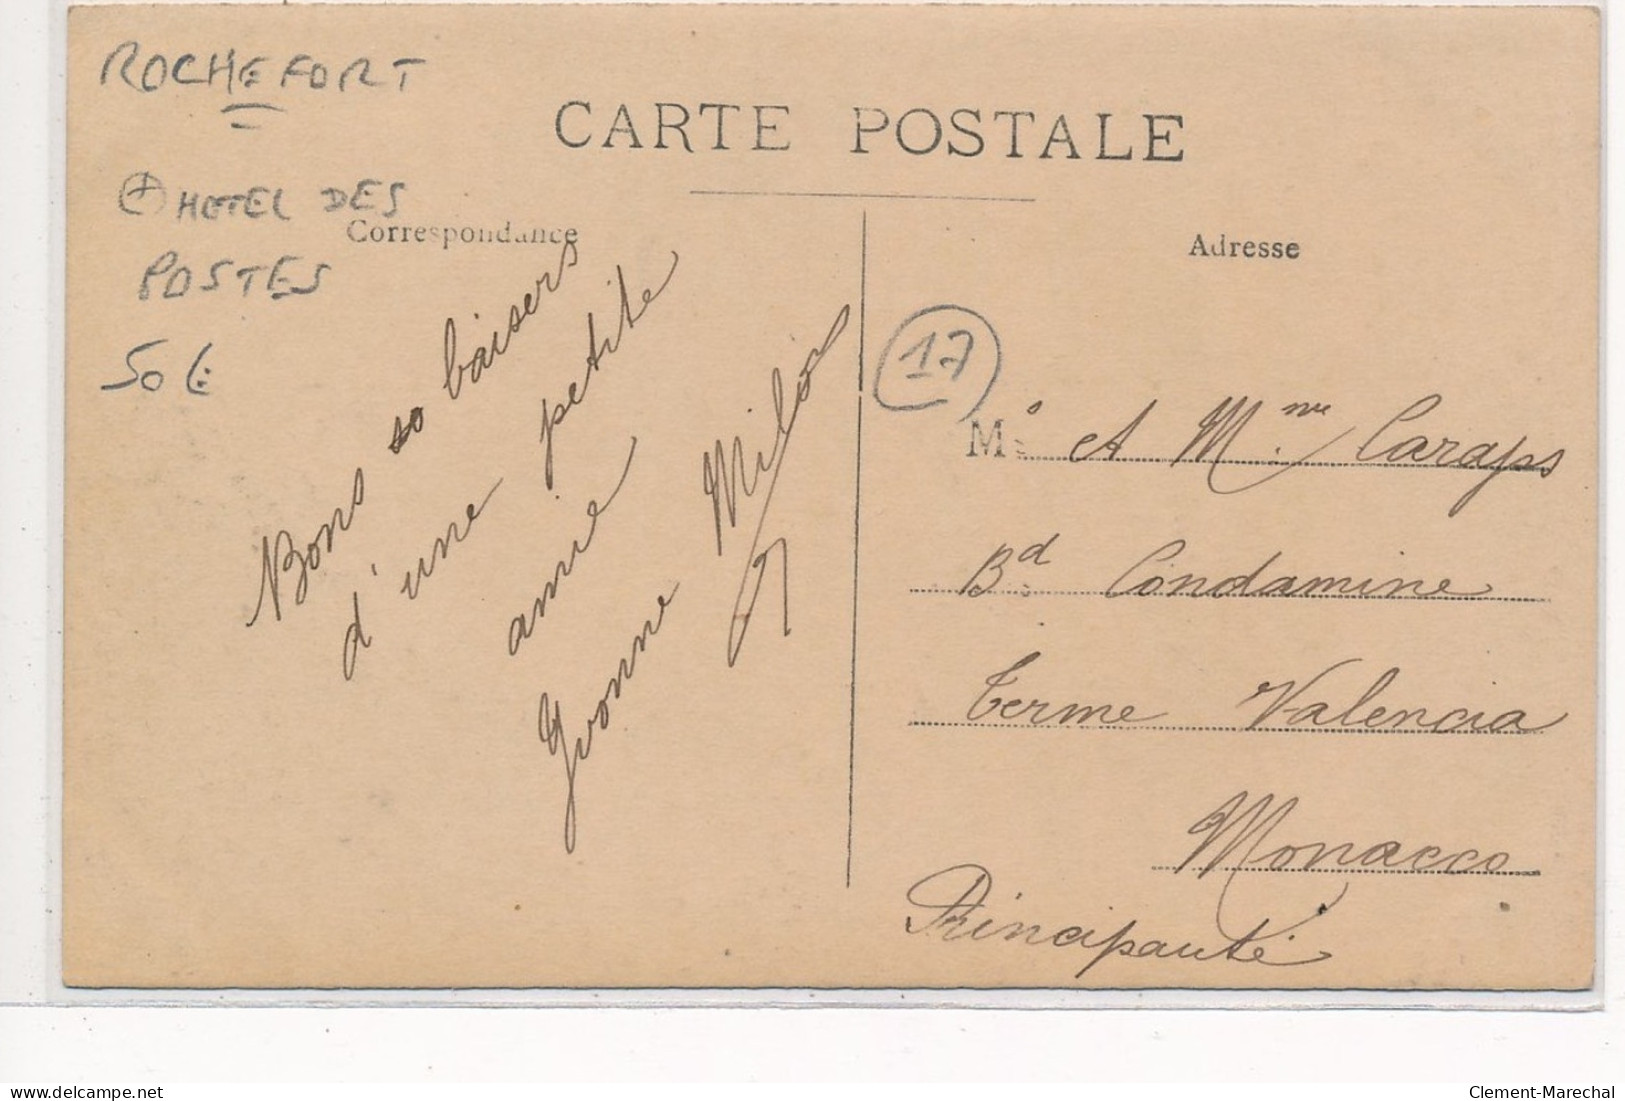 ROCHEFORT
CARTE POSTALE
+ HOTEL DES
POSTES
50 €
Correspondance
Adresse
17
Bons baisers
d'une petite
amie
Yvonne Milo
M. et Mme Caraps
Bd Condamine
Terme Valencia
Monacco
Principauté
delcampe.net
Clement-Marechal